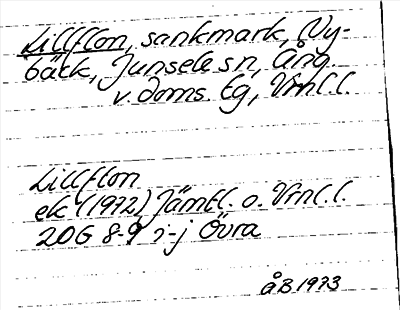 Lillflon, sankmark, Ny-
bäck, Junsele sn, Ång.
v. doms. tg, Vrnl.l.
Lillflon
ek (1972) Jämtl. o. Vrnl.l.
20G 8-9 i-j Övra
ÅB 1973